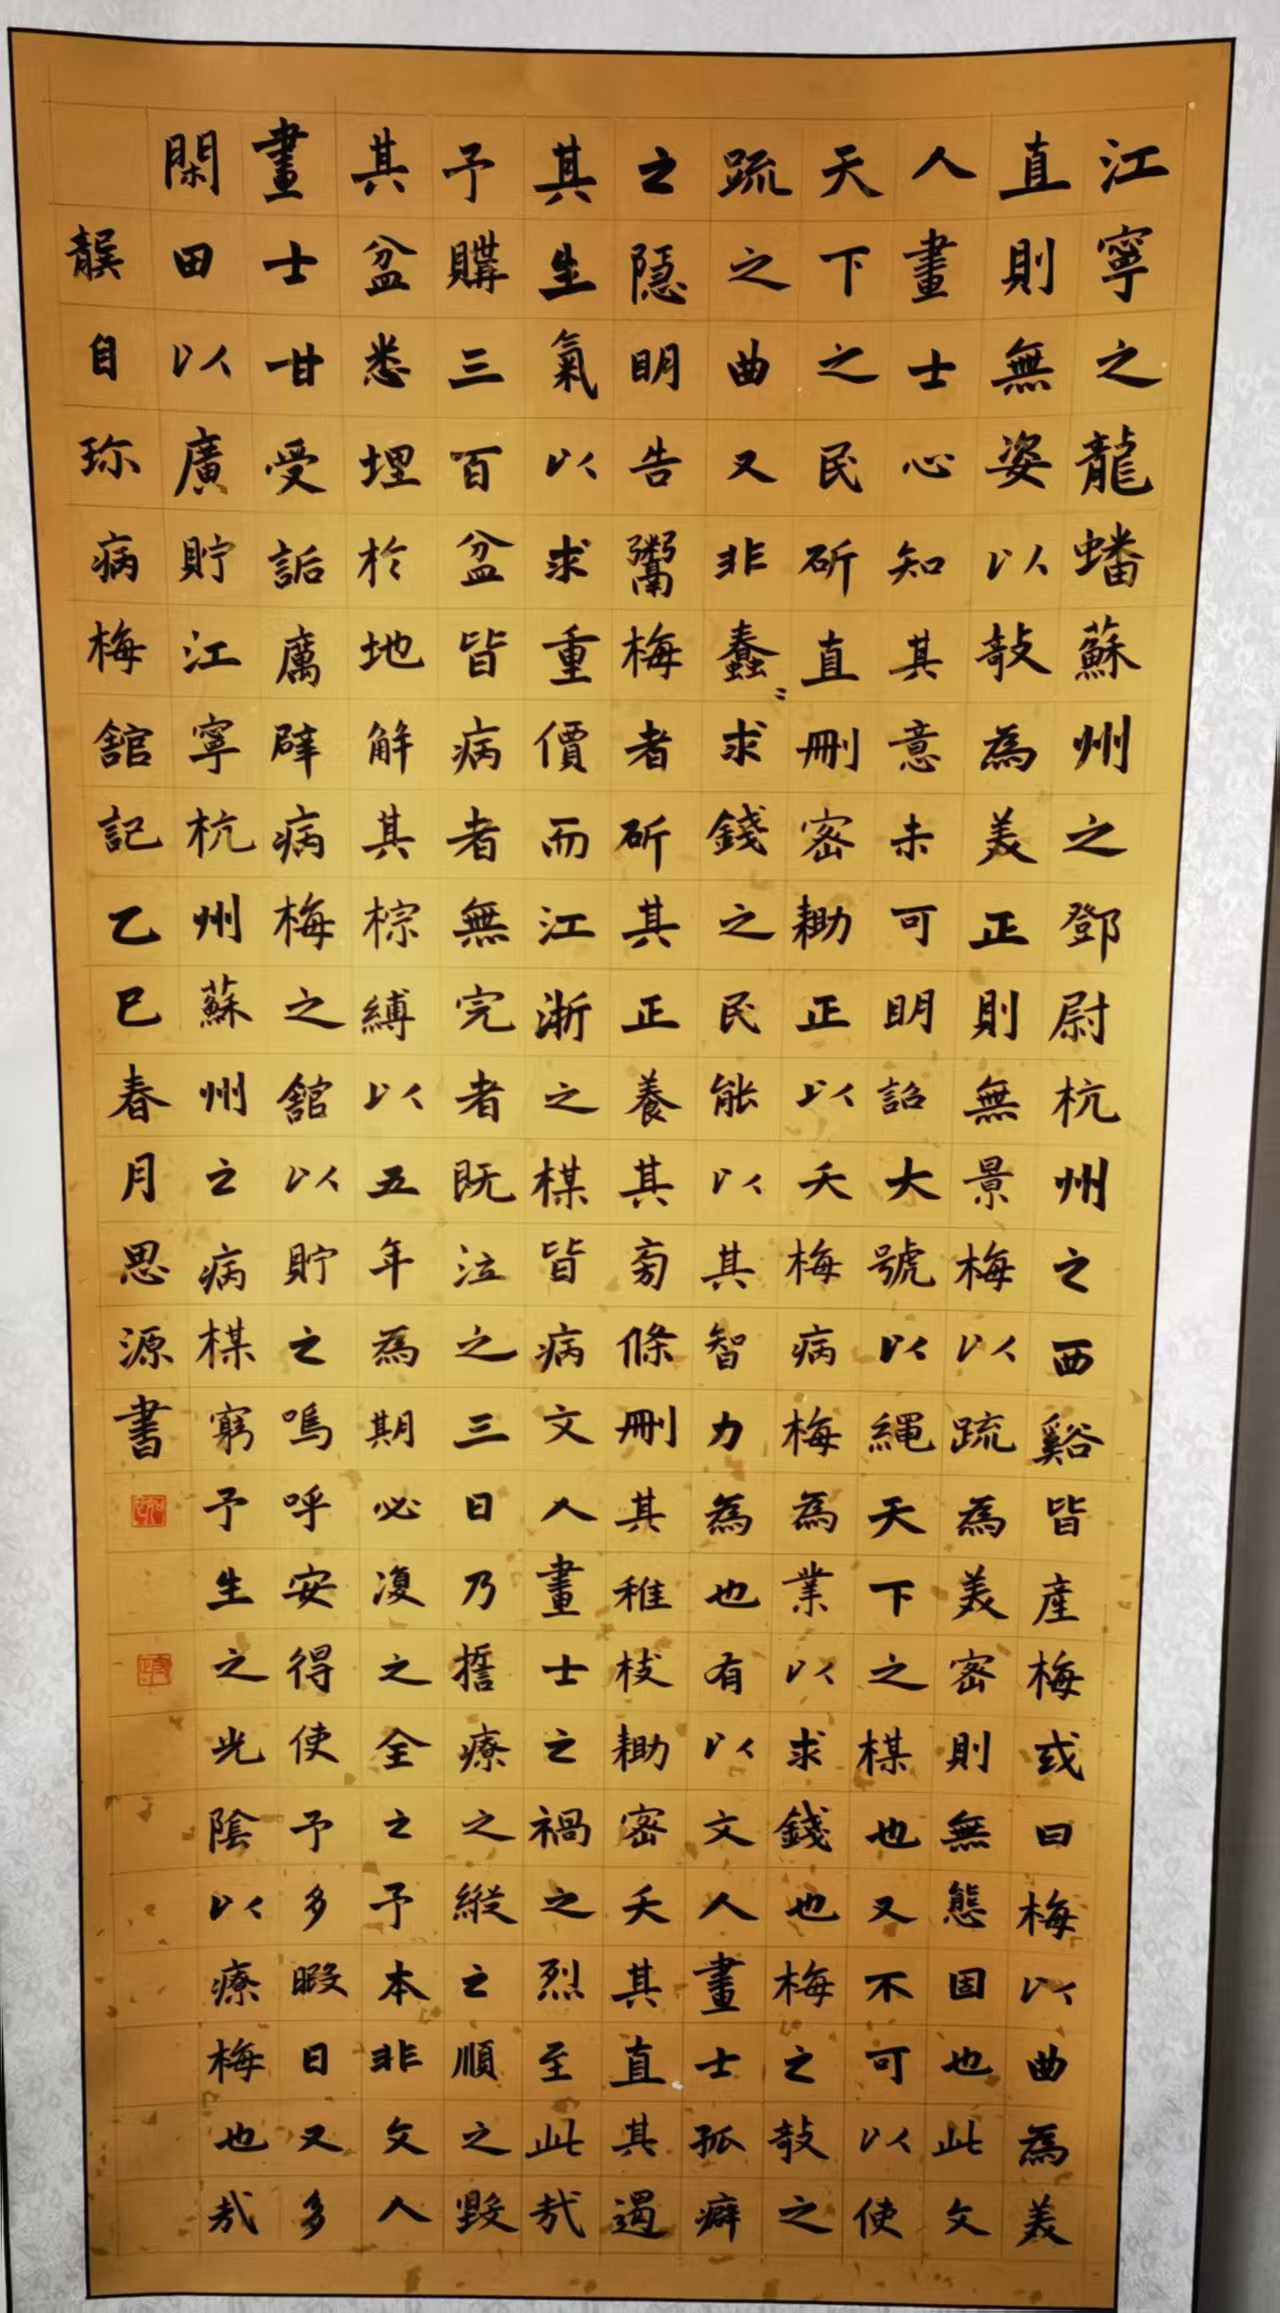 江寧之龍蟠蘇州之鄧尉杭州之西谿皆產梅或曰梅以曲為美
直則無姿以敧為美正則無景梅以疏為美密則無態固也此文
人畫士心知其意未可明詔大號以繩天下之楳也又不可以使
天下之民斫直刪密耡正以夭梅病梅為業以求錢也梅之敧之
疏之曲又非蠢〻求錢之民能以其智力為也有以文人畫士孤癖
之隱明告鬻梅者斫其正養其旁條刪其稚枝耡密夭其直其遏
其生氣以求重價而江浙之楳皆病文人畫士之禍之烈至此哉
予購三百盆皆病者無完者既泣之三日乃誓療之縱之順之毀
其盆悉埋於地解其棕縛以五年為期必復之全之予本非文人
畫士甘受詬厲辟病梅之舘以貯之嗚呼安得使予多暇日又多
閑田以廣貯江寧杭州蘇州之病楳窮予生之光陰以療梅也哉
龔自珍病梅舘記乙巳春月思源書